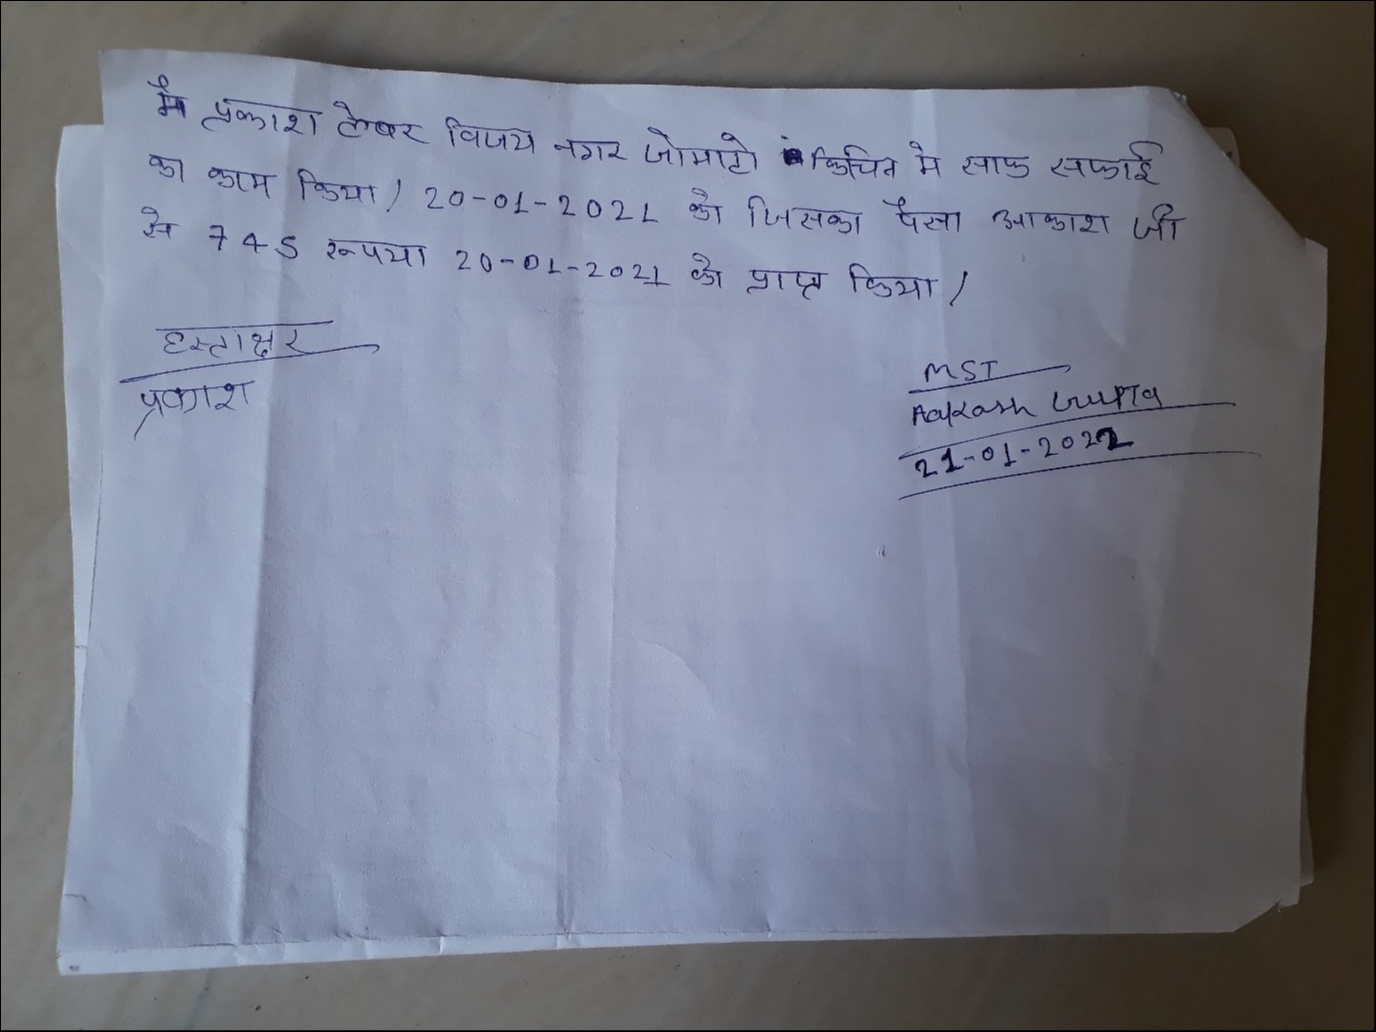 मै प्रकाश लेबर विजय नगर जोमाटो किचिन मे साफ सफाई
का काम किया। 20-01-2021 को जिसका पैसा आकाश जी
से 745 रूपया 20-01-2021 को प्राप्त किया।
हस्ताक्षर
प्रकाश
MST
Aakash Gupta
21-01-2021